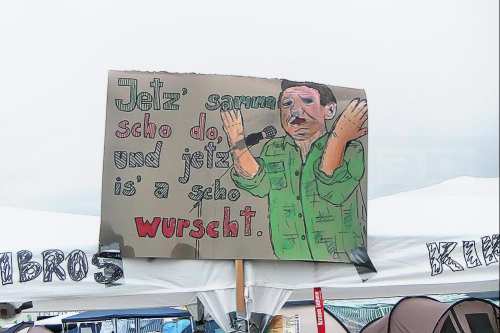 Jetz' samma
scho do,
und jetz
is' a scho
wurscht.
MBROS
KIK